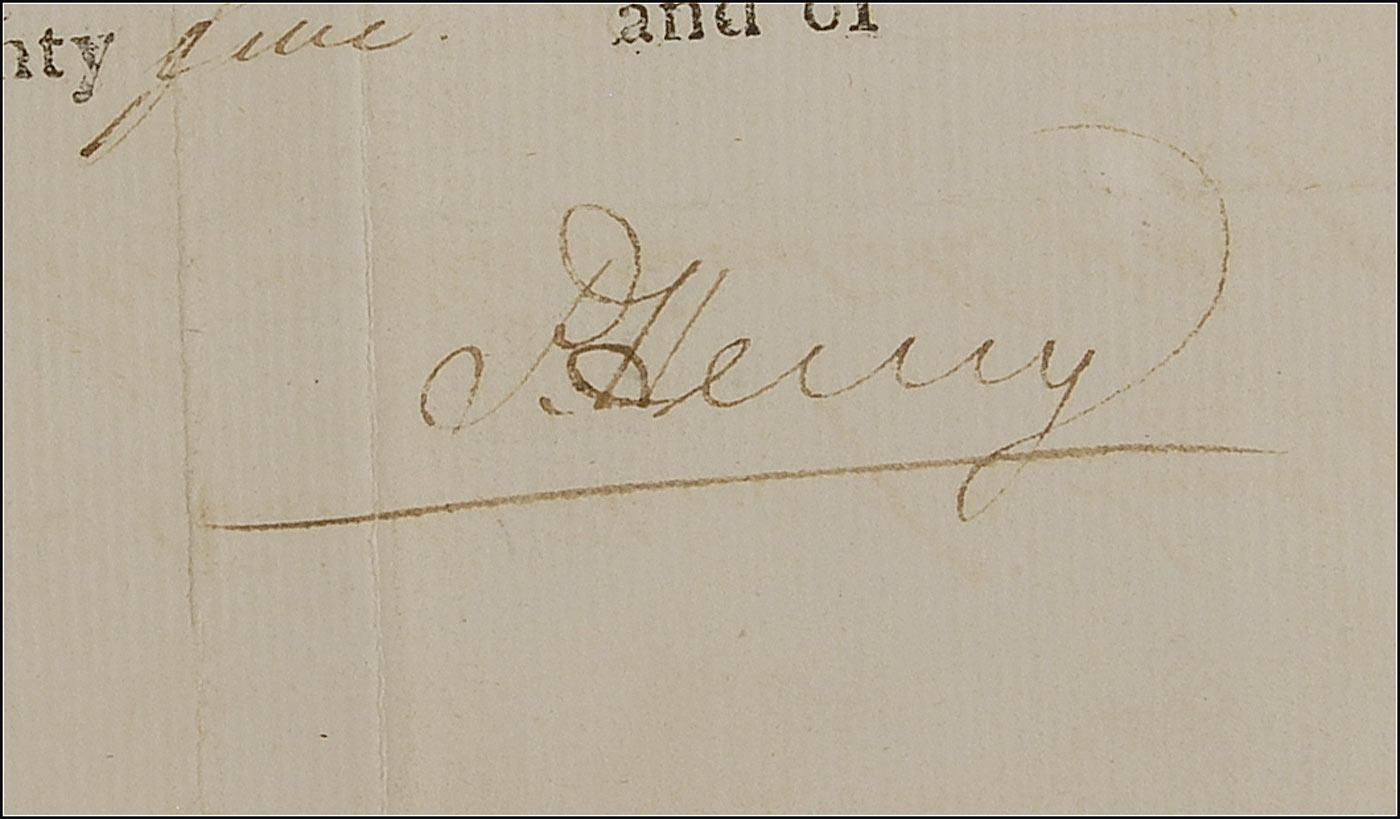 nty five. and of
P. Henry